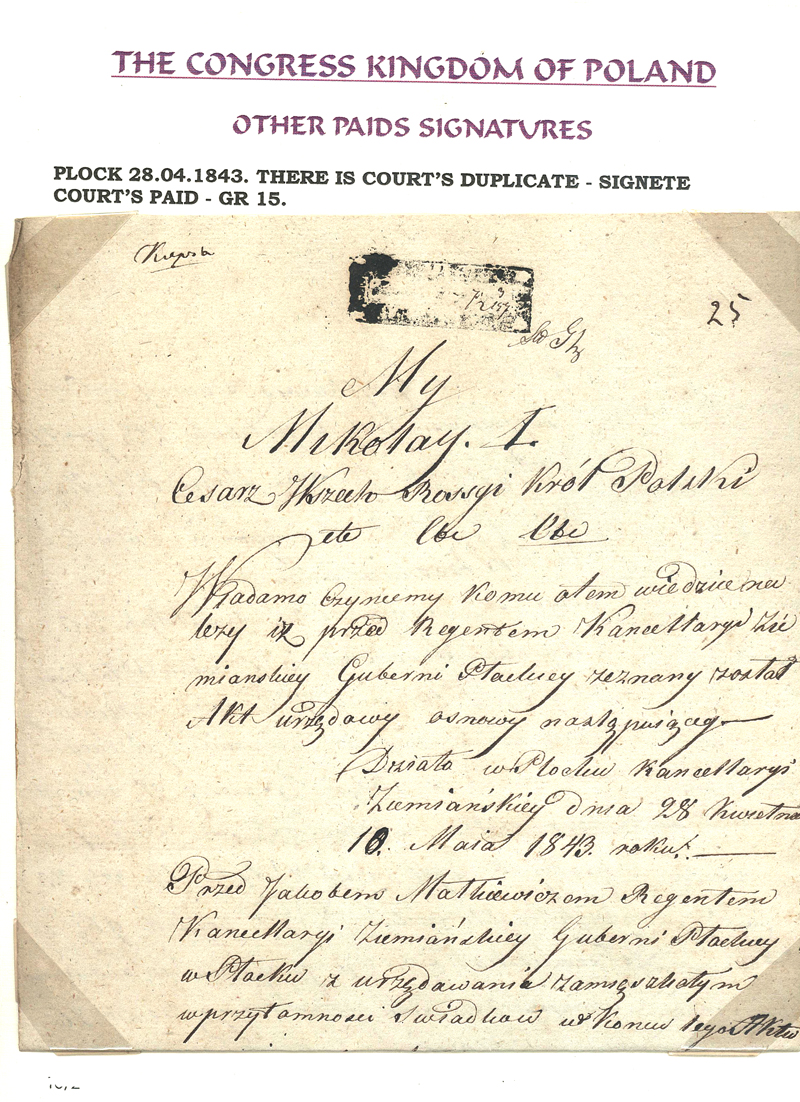 THE CONGRESS KINGDOM OF POLAND
OTHER PAIDS SIGNATURES
PLOCK 28.04.1843. THERE IS COURT'S DUPLICATE - SIGNETE
COURT'S PAID - GR 15.
25
My
Mikołay. I.
Cesarz Wszech Rossyi Król Polski
etc
Wiadomo czyniemy komu otem wiedzieć na
leży iż przed Regentem Kancellaryi Zie
mianskiey Guberni Płockiey zeznany został
Akt urzędowy osnowy następuiącey
Działo w Płocku Kancellaryi
Ziemiańskiey dnia 28 Kwietnia
10. Maia 1843. roku.
Przed Jakobem Regentem
Kancellaryi Ziemiańskiey Guberni Płockiey
w Płocku z urzędowania zamięszkałym
w przytomności Swiadków w końcu tego Aktu